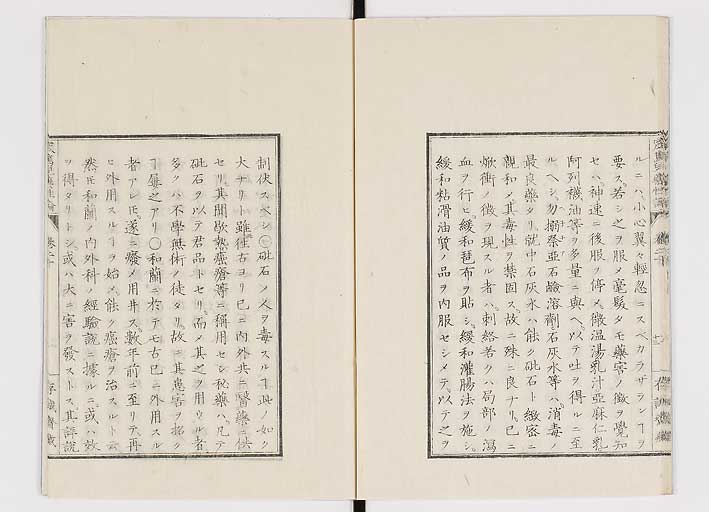 ルニハ小心翼々輕忽ニスベカラザランヿヲ
要ス若シ之ヲ服メ毫髮タモ藥害ノ徴ヲ覺知
セハ神速ニ後服ヲ停メ微温湯乳汁亞麻仁乳
阿列襪油等ヲ多量ニ與ヘ以テ吐ヲ得ルニ至
ルヘシ勿搦祭亞石鹼溶劑石灰水等ハ消毒ノ
最良藥タリ就中石灰水ハ能ク砒石ト緻密ニ
親和メ其毒性ヲ禁固ス故ニ殊ニ良ナリ已ニ
焮衝ノ徴ヲ現スル者ハ刺絡若クハ局部ノ瀉
血ヲ行ヒ緩和琶布ヲ貼シ緩和灌腸法ヲ施シ
緩和粘滑油質ノ品ヲ内服セシメテ以テ之ヲ
制伏スヘシ○砒石ノ人ヲ毒スルヿ此ノ如ク
大ナリト雖𪜈往古ヨリ已ニ内外共ニ醫藥ニ供
セリ其間歇熱癌瘡等ニ稱用セシ秘藥ハ凡テ
砒石ヲ以テ君品トセリ而メ其之ヲ用ウル者
多クハ不學無術ノ徒タリ故ニ其患害ヲ招ク
ヿ屢之アリ○和蘭ニ於テモ古已ニ外用スル
者アレ𪜈遂ニ癈メ用井ス數年前ニ至リテ再
ヒ外用スルヿヲ始メ能ク癌瘡ヲ治スルト云
然𪜈和蘭ノ内外科ノ經驗説ニ據ルニ或ハ效
ヲ得タリトシ或ハ大ニ害ヲ發ストス其詳説
卷二十
存誠齋藏